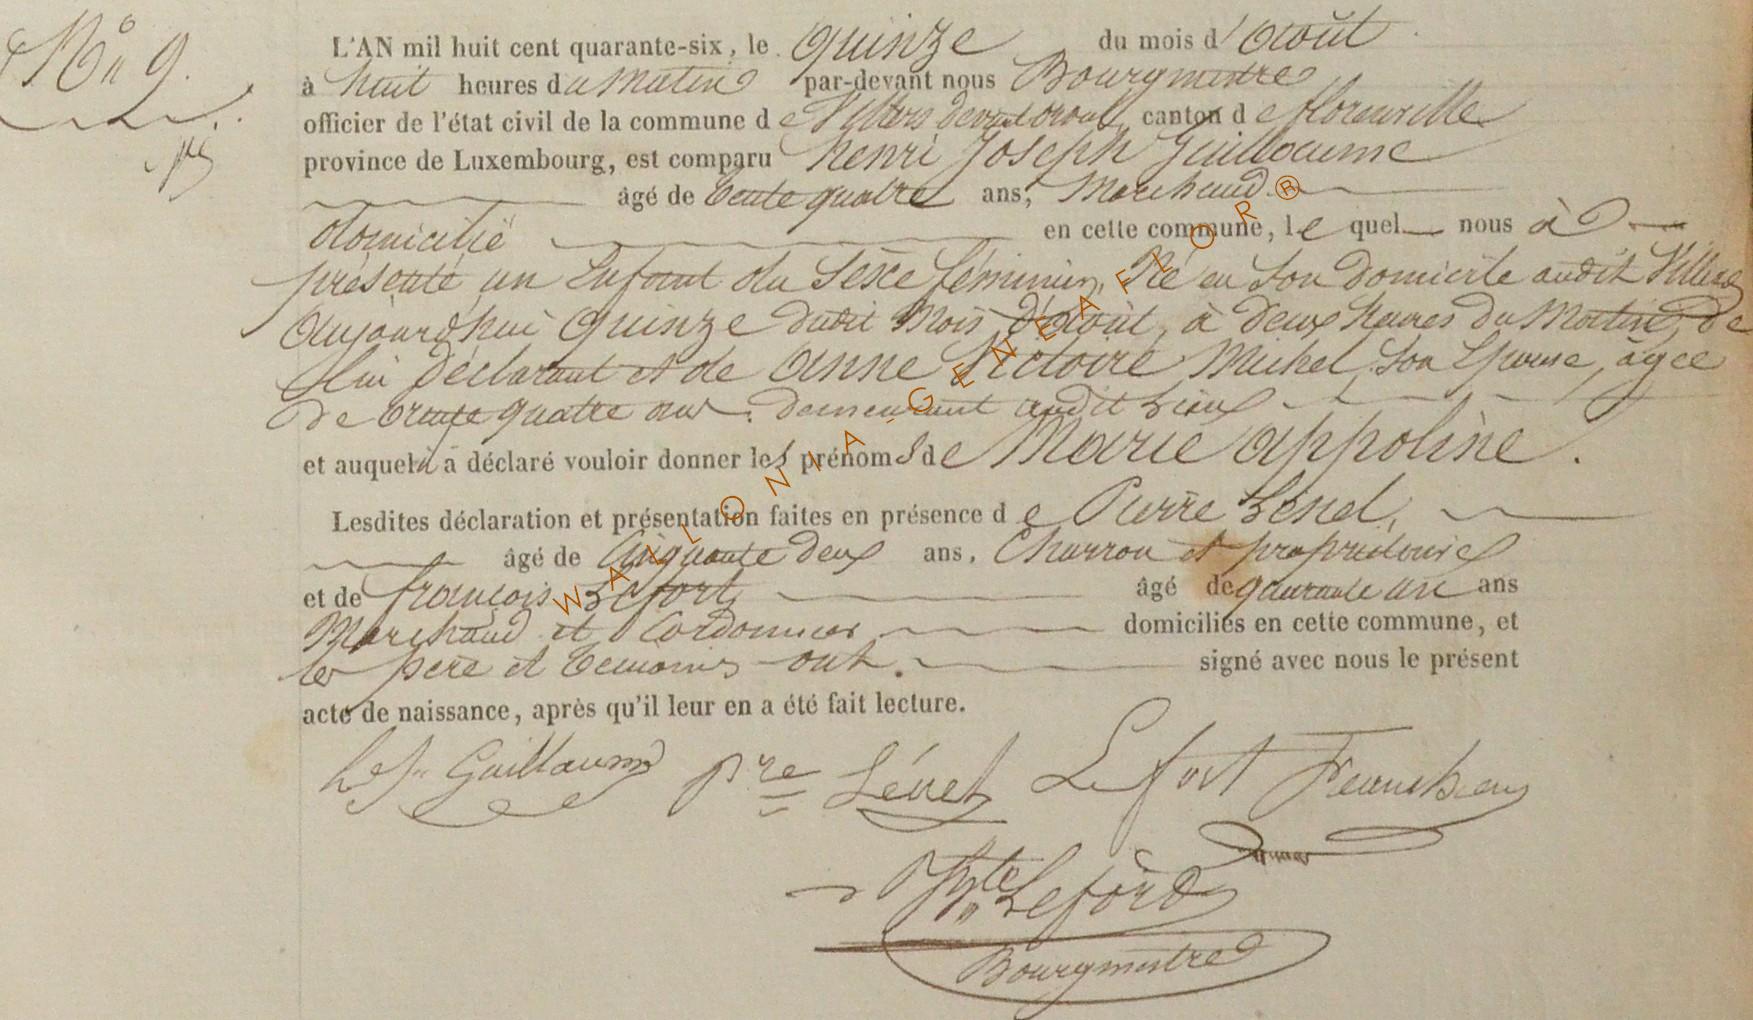 No 9.
L'AN mil huit cent quarante-six, le quinze du mois d'août
à huit heures du matin par-devant nous Bourgmestre
officier de l'état civil de la commune de Villers devant orval, canton de florenville
province de Luxembourg, est comparu henri Joseph Guillaume
âgé de trente quatre ans, Marchand
domicilié en cette commune, lequel nous à
présenté un Enfant du Sexe féminin, Né en son domicile audit Villers
aujourd'hui quinze dudit Mois d'août, à deux heures du Matin, de
lui déclarant et de anne Victoire Michel son Epouse, âgée
de trente quatre ans. demeurant audit lieu
et auquel il a déclaré vouloir donner les prénoms de Marie appoline.
Lesdites déclaration et présentation faites en présence de Pierre Lénel,
âgé de Cinquante deux ans, Charron et propriétaire
et de françois Lefort âgé de quarante un ans
Marchand et Cordonnier domiciliés en cette commune, et
les père et temoins ont. signé avec nous le présent
acte de naissance, après qu'il leur en a été fait lecture.
h. J. Guillaume pre Lénel Lefort Francois
Lefort
Bourgmestre
WALLONIA-GENEAFLOR®